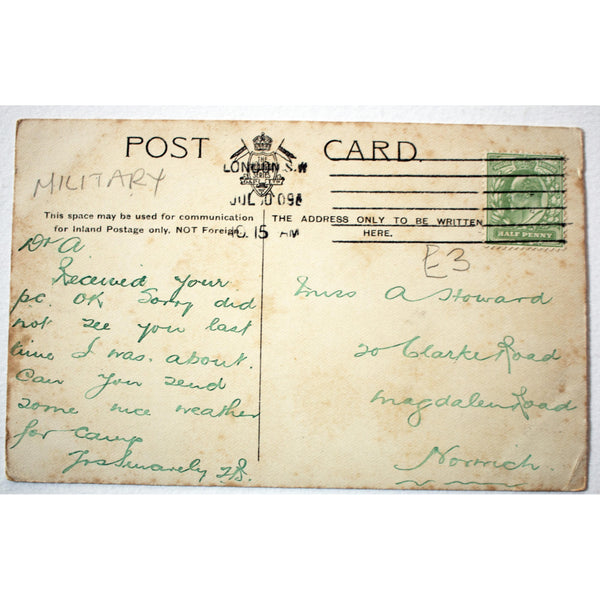 POST CARD.
MILITARY
THE
LONDON. S.W
JUL 10 09
10.15 AM
HALF PENNY
This space may be used for communication
for Inland Postage only, NOT Foreign.
THE ADDRESS ONLY TO BE WRITTEN
HERE.
£3
Dr A.
Received your
p.c. OK Sorry did
not see you last
time I was about.
Can you send
some nice weather
for camp
Yrs Sincerely
Miss A Howard
20 Clarke Road
Magdalen Road
Norwich.